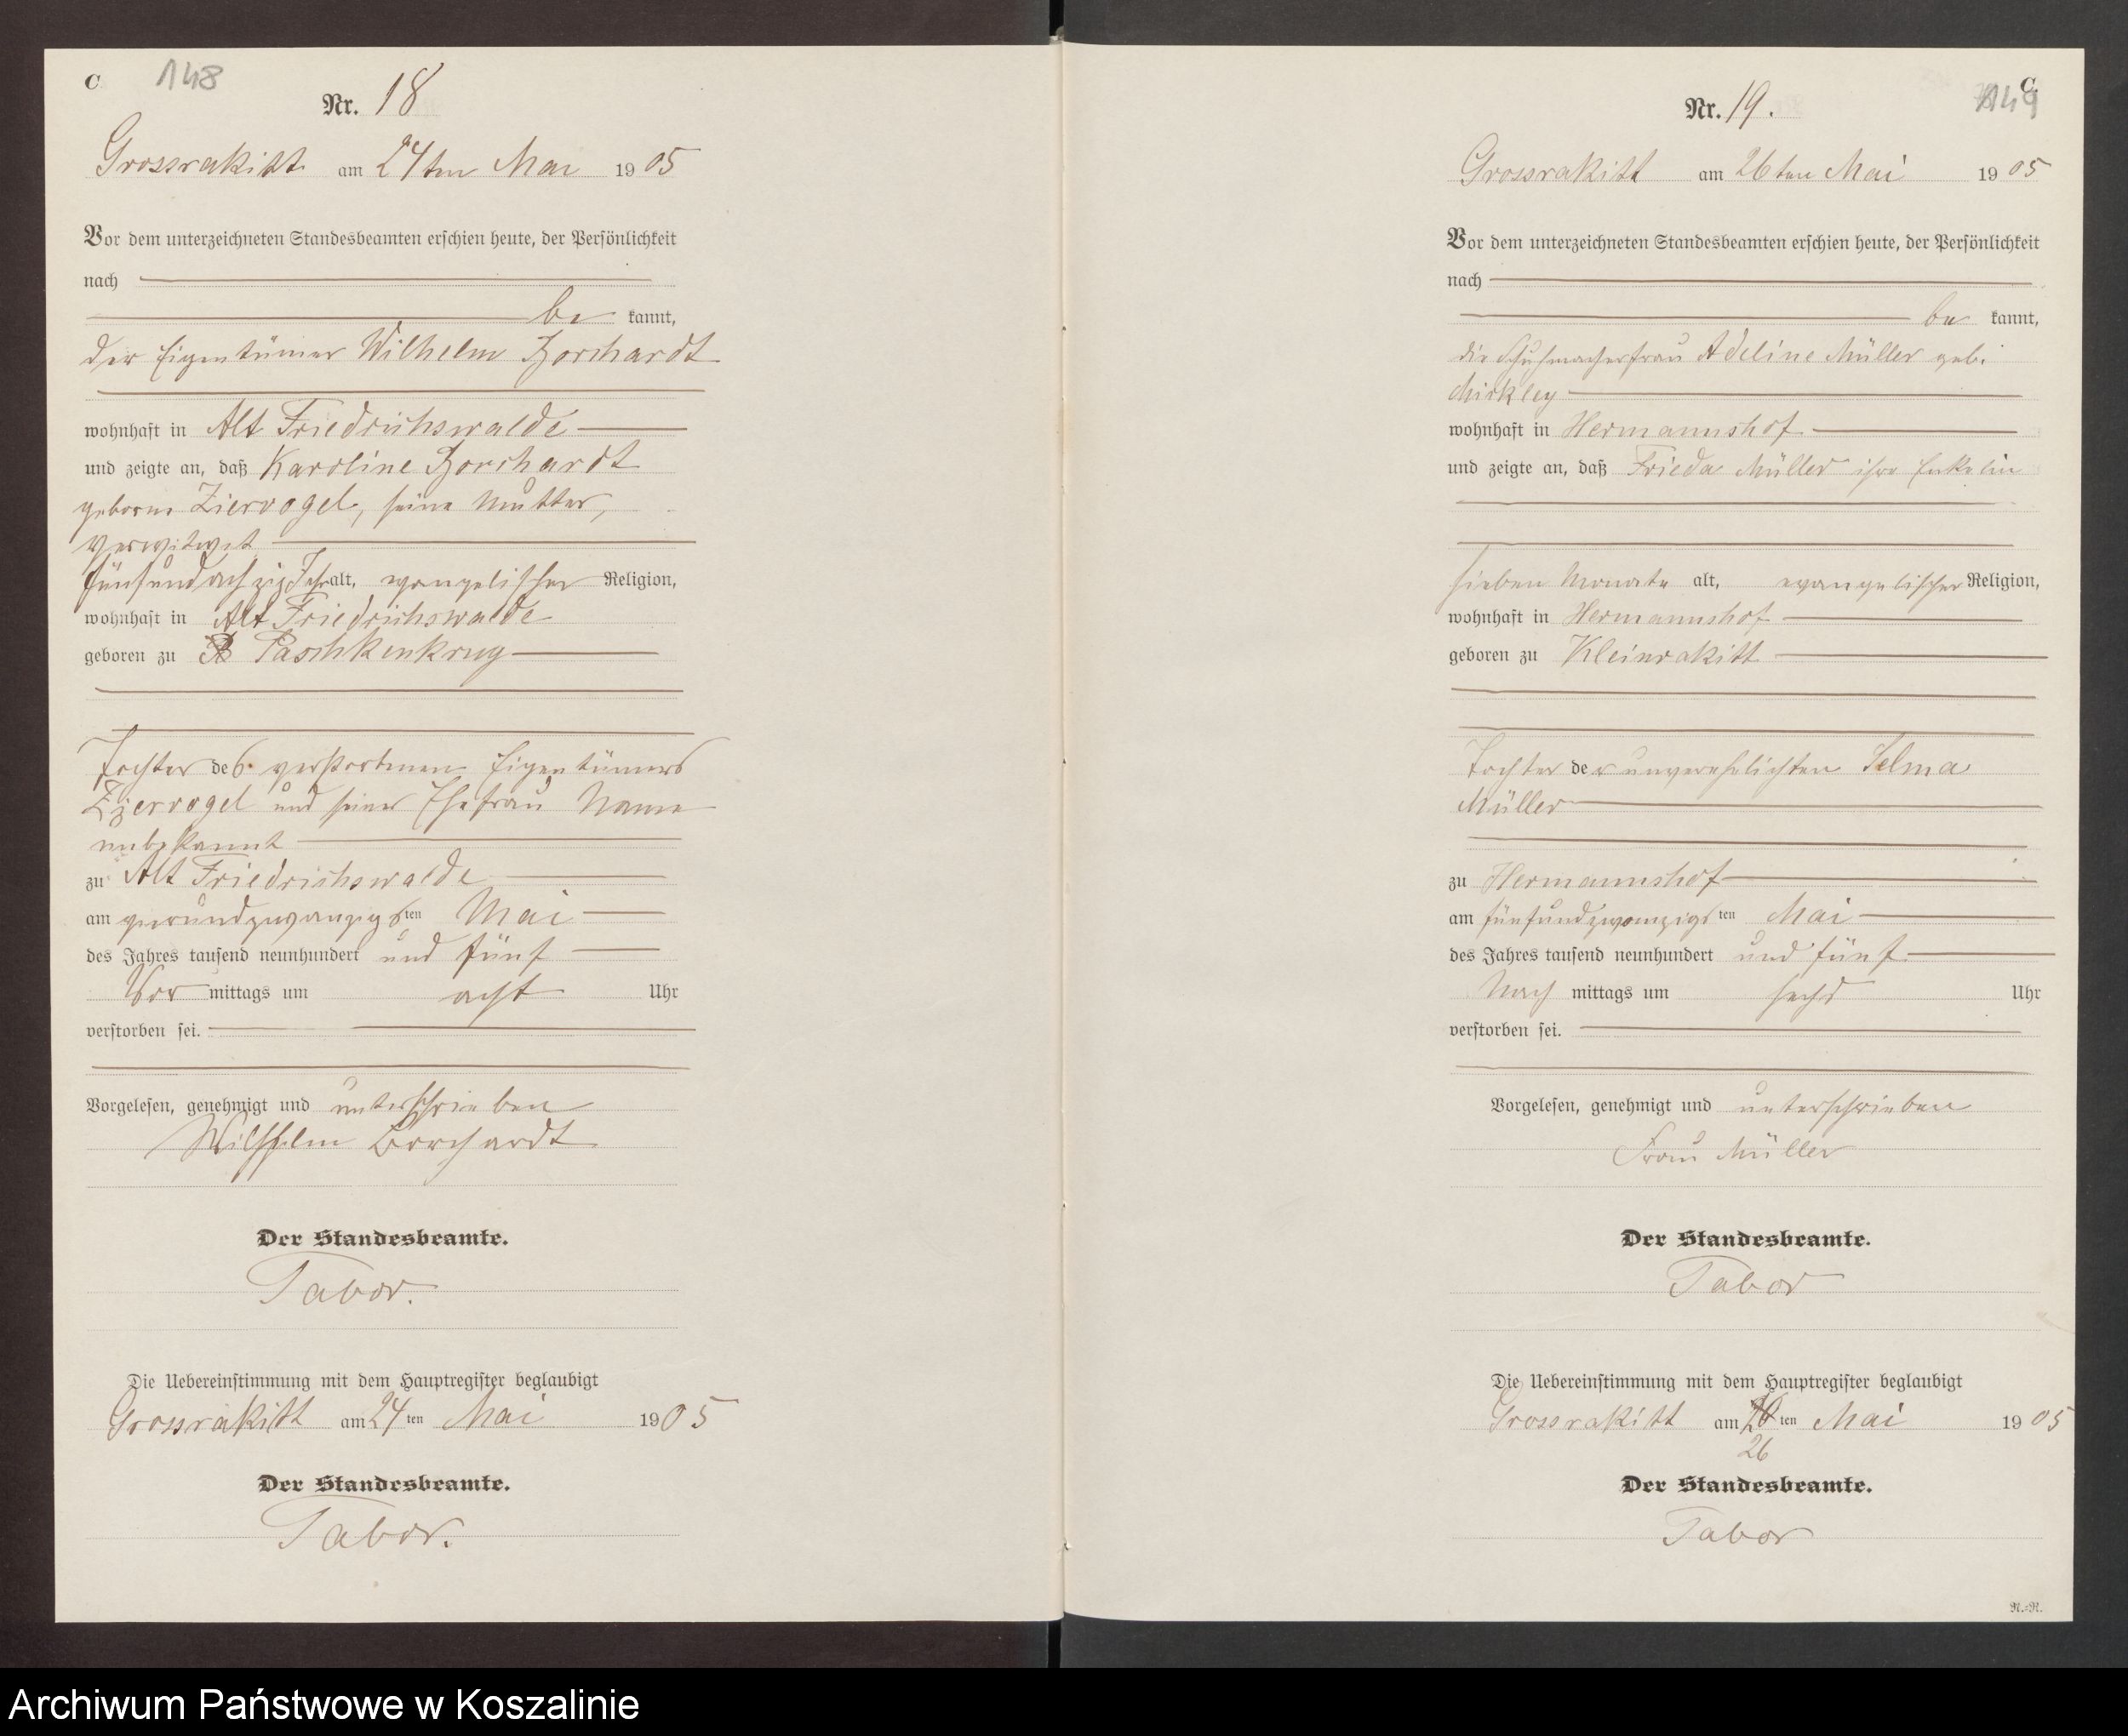 C 148
Nr. 18
Grossrakitt am 24ten Mai 1905
Vor dem unterzeichneten Standesbeamten erschien heute, der Persönlichkeit
nach
be kannt,
der Eigentümer Wilhelm Borchardt
wohnhaft in Alt Friedrichswalde
und zeigte an, daß Karoline Borchardt
geborne Ziervogel, seine Mutter,
verwitwet
fünfundachzig Jahr alt, evangelischer Religion,
wohnhaft in Alt Friedrichswalde
geboren zu Paschkenkrug
Tochter des verstorbenen Eigentümers
Ziervogel und seiner Ehefrau Name
unbekannt
zu Alt Friedrichswalde
am vierundzwanzigsten Mai
des Jahres tausend neunhundert und fünf
Vor mittags um acht Uhr
verstorben sei.
Vorgelesen, genehmigt und unterschrieben
Wilhelm Borchardt
Der Standesbeamte.
Tabor.
Die Uebereinstimmung mit dem Hauptregister beglaubigt
Grossrakitt am 24ten Mai 1905
Der Standesbeamte.
Tabor.
C 149
Nr. 19.
Grossrakitt am 26ten Mai 1905
Vor dem unterzeichneten Standesbeamten erschien heute, der Persönlichkeit
nach
be kannt,
die Schuhmacherfrau Adeline Müller geb.
wohnhaft in Hermannshof
und zeigte an, daß Frieda Müller ihre Enkelin
sieben Monate alt, evangelischer Religion,
wohnhaft in Hermannshof
geboren zu Kleinrakitt
Tochter der unverehelichten Selma
Müller
zu Hermannshof
am fünfundzwanzigsten Mai
des Jahres tausend neunhundert und fünf
Nach mittags um sechs Uhr
verstorben sei.
Vorgelesen, genehmigt und unterschrieben
Frau Müller
Der Standesbeamte.
Tabor
Die Uebereinstimmung mit dem Hauptregister beglaubigt
Grossrakitt am ten Mai 1905
26
Der Standesbeamte.
Tabor
N.=N.
Archiwum Państwowe w Koszalinie